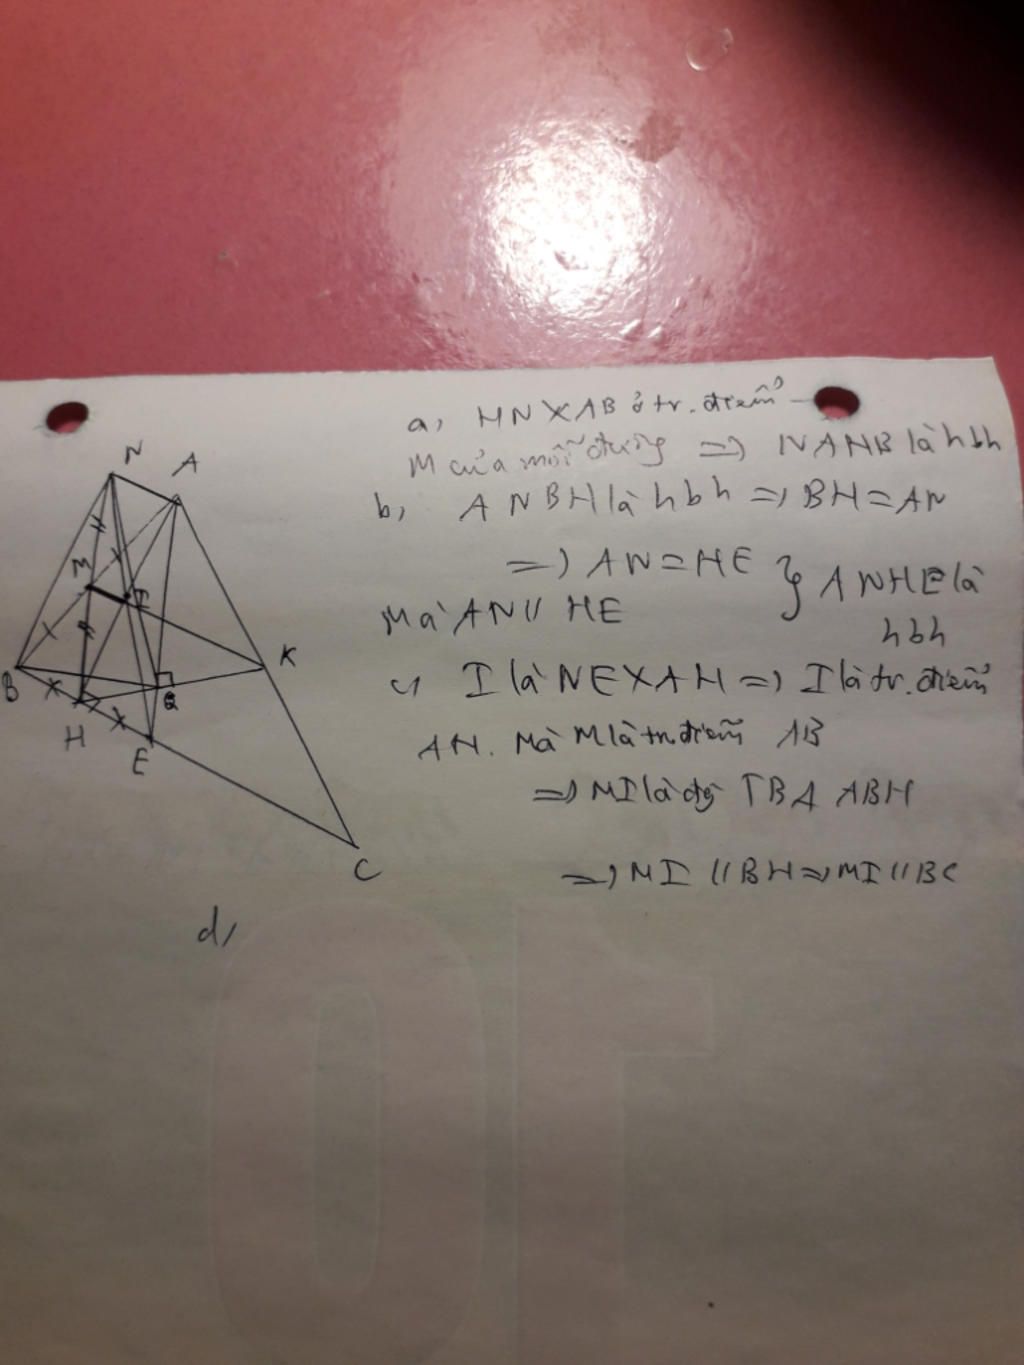 a, HN X AB ở tr. điểm
M của mỗi đường => NAHB là hbh
b, ANBH là hbh => BH = AN
=> AN = HE } ANHE là
Mà AN // HE
hbh
c, I là NE X AH => I là tr. điểm
AH. Mà M là tr. điểm AB
=> MI là đg TB Δ ABH
=> MI // BH => MI // BC
d,
N
A
M
I
K
B
Q
H
E
C